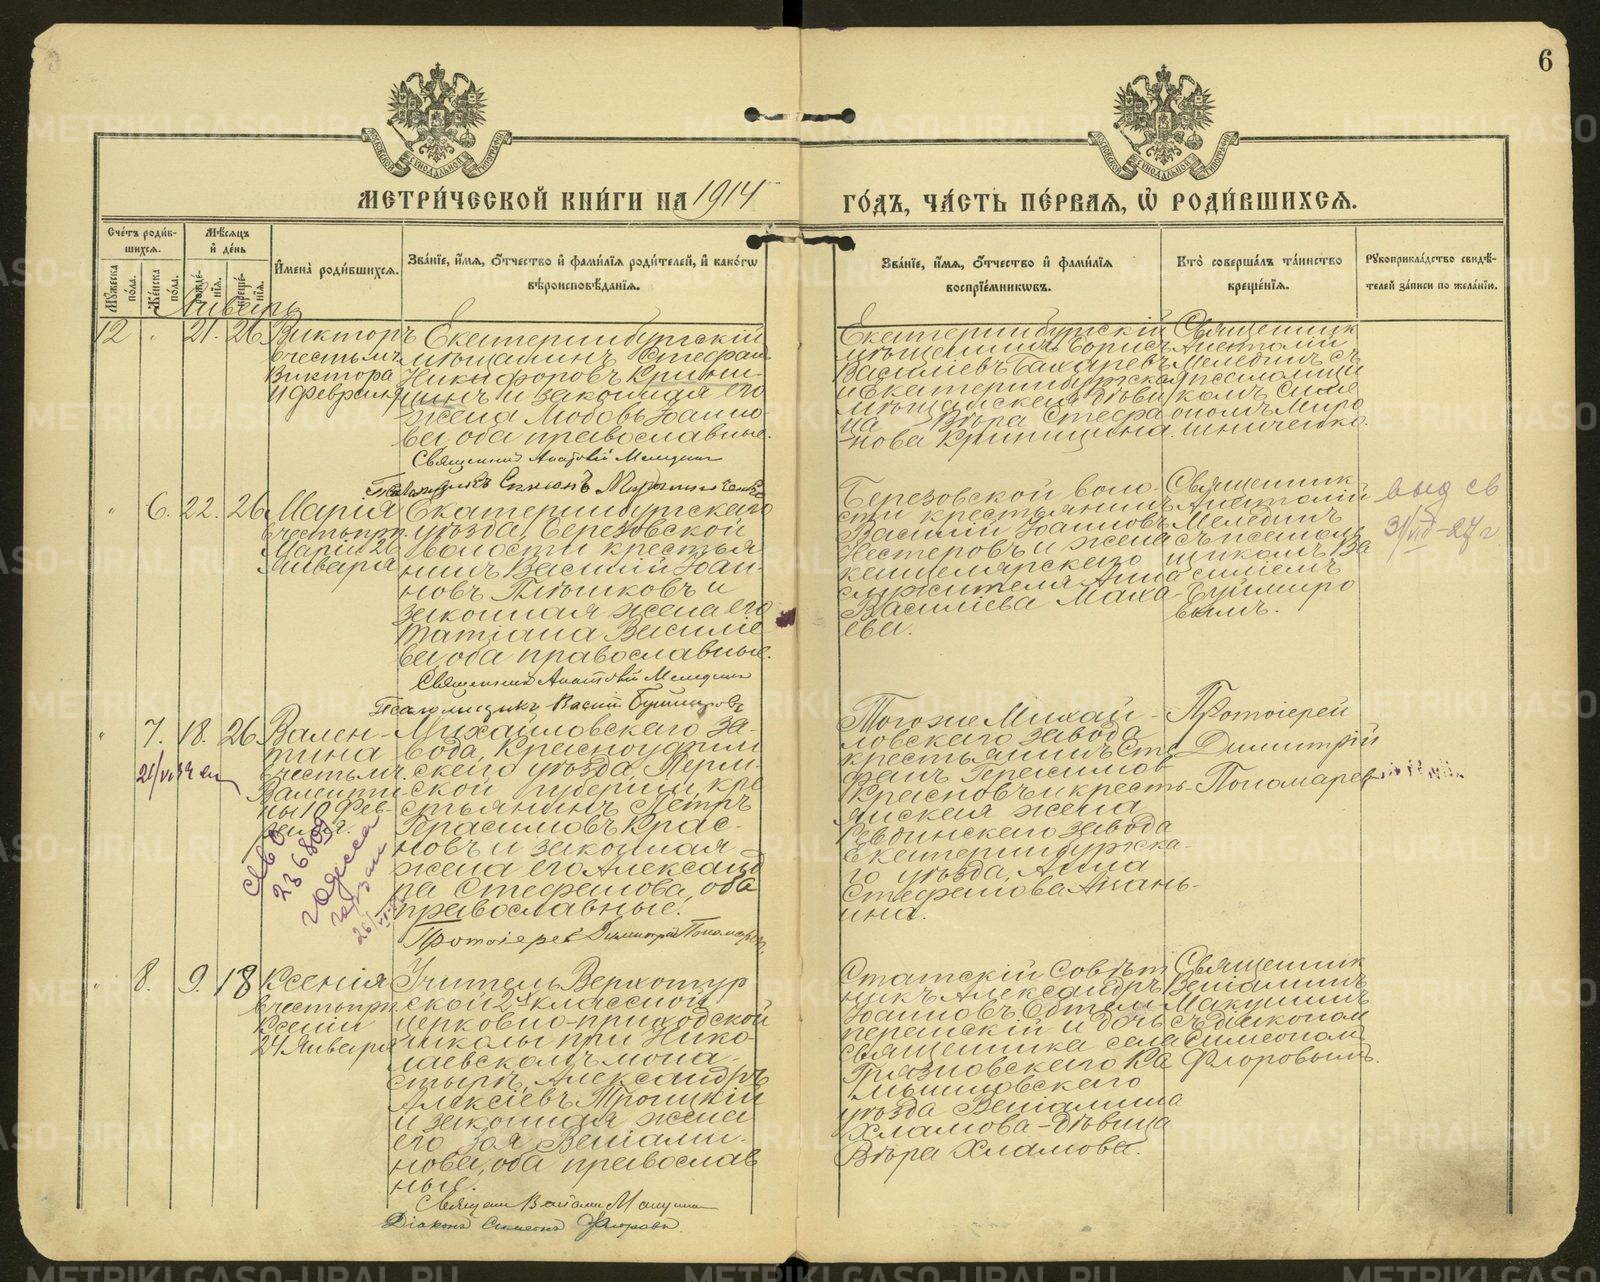 6
МЕТРИ́ЧЕСКОЙ КНИ́ГИ НА 1914
ГО́ДЪ, ЧА́СТЬ ПЕ́РВАЯ, Ѡ҆ РОДИ́ВШИХСЯ.
Счетъ роди́в-
шихся.
Мꙋжеска
по́ла.
Же́нска
по́ла.
Мѣсяцъ
и҆ де́нь
рожде́-
нія.
креще́-
нія.
И҆мена̀ роди́вшихся.
Зва́нїе, и҆́мя, ѻ҆́тчество и҆ фами́лїя роди́телей, и҆ како́гѡ
вѣроисповѣ́данїя.
Зва́нїе, и҆́мя, ѻ҆́тчество и҆ фами́лїя
воспрїе́мникѡвъ.
Кто̀ соверша́лъ та́инство
креще́нїя.
Рꙋкоприкла́дство свидѣ́-
телей за́писи по жела́нїю.
Январь
12 " 21. 26
Викторъ
въ честь мч.
Виктора
11 февраля
Екатеринбургскій
мѣщанинъ Стефанъ
Никифоровъ Крини-
цинъ и законная его
жена Любовь Іоанно-
ва, оба православные.
Священникъ Анатолій Меледин
Псаломщикъ Симеонъ Мирошниченко
Екатеринбургскій
мѣщанинъ Борисъ
Васильевъ Бахаревъ
и Екатеринбургская
мѣщанская дѣви
ца Вѣра Стефа
нова Криницина.
Священникъ
Анатолій
Мелединъ съ
псаломщи
комъ Симе
ономъ Миро
шниченко.
" 6. 22. 26
Марія
въ честь прп.
Маріи 26
Января
Екатеринбургскаго
уѣзда, Березовской
волости крестья
нинъ Василій Іоан-
новъ Пѣшковъ и
законная жена его
Татіана Василіе
ва, оба православные.
Священникъ Анатолій Меледин
Псаломщикъ Васил Буймировъ
Березовской воло-
сти крестьянинъ
Василій Іоанновъ
Нестеровъ и жена
канцелярскаго
служителя Анна
Василіева Маха-
ева.
Священникъ
Анатолій
Мелединъ
съ псалом
щикомъ Ва
силіемъ
Буймиро
вымъ.
выд св
31/VIII-27 г
" 7. 18. 26
21/VI 34
Вален-
тина
въ честь мч.
Валенти
ны 10 Фев-
раля.
Св-во
236809
г Одесса
Михайловскаго за-
вода, Красноуфим
скаго уѣзда, Перм-
ской губерніи, кре
стьянинъ Петръ
Герасимовъ Крас-
новъ и законная
жена его Александ
ра Стефанова, оба
православные.
Протоіерей Димитрій Пономарев
Тогоже Михай-
ловскаго завода
крестьянинъ Сте
фанъ Герасимов
Красновъ и кресть-
янская жена
Ревдинскаго завода
Екатеринбургска-
го уѣзда, Анна
Стефанова Анань-
ина.
Протоіерей
Димитрій
Пономарев
" 8. 9. 18
Ксенія
въ честь прп.
Ксеніи
24 Января
Учитель Верхотур
ской 2й классной
церковно-приходской
школы при Нико-
лаевскомъ мона-
стырѣ, Александръ
Алексіевъ Троицкій
и законная жена
его Зоя Веніами-
нова, оба православ
ные.
Священ Веніами Макушин
Діаконъ Симеонъ Флоровъ
Статскій Совѣт
никъ Александръ
Іоанновъ Обтем
перанскій и дочь
священника села
Грязновскаго Ка
мышловскаго
уѣзда Веніамина
Хламова - дѣвица
Вѣра Хламова.
Священник
Веніаминъ
Макушинъ
съ діакономъ
Симеономъ
Флоровымъ.
METRIKI.GASO-URAL.RU